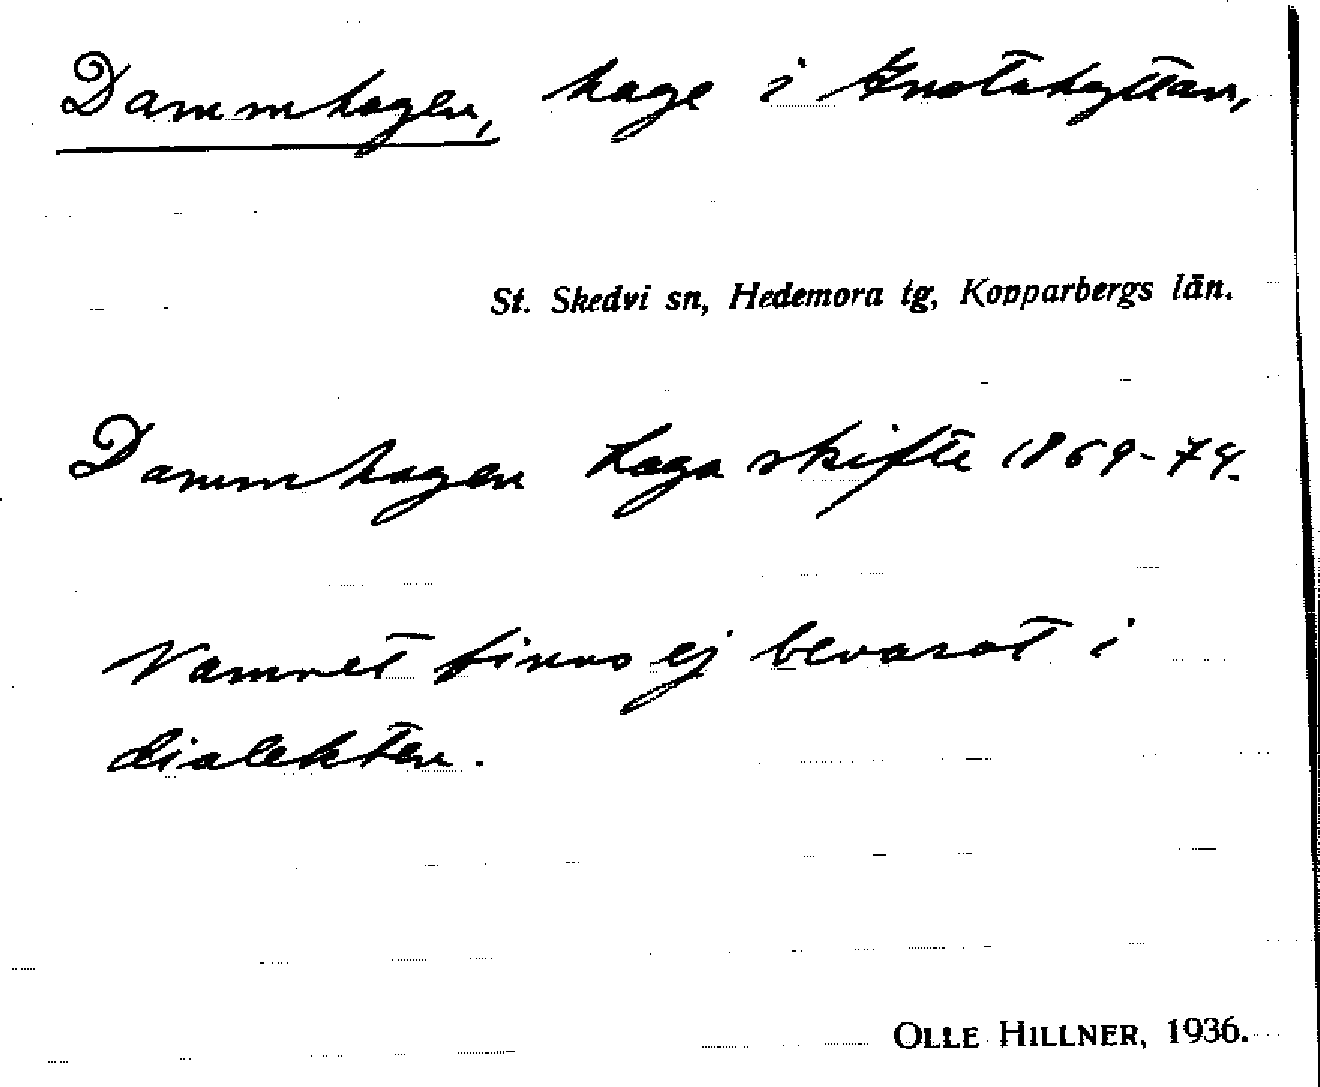 Dammhagen, hage i Knutshyttan,
St. Skedvi sn, Hedemora tg, Kopparbergs län.
Dammhagen Laga skifte 1869-74.
Namnet finns ej bevarat i
dialekten.
OLLE HILLNER, 1936.